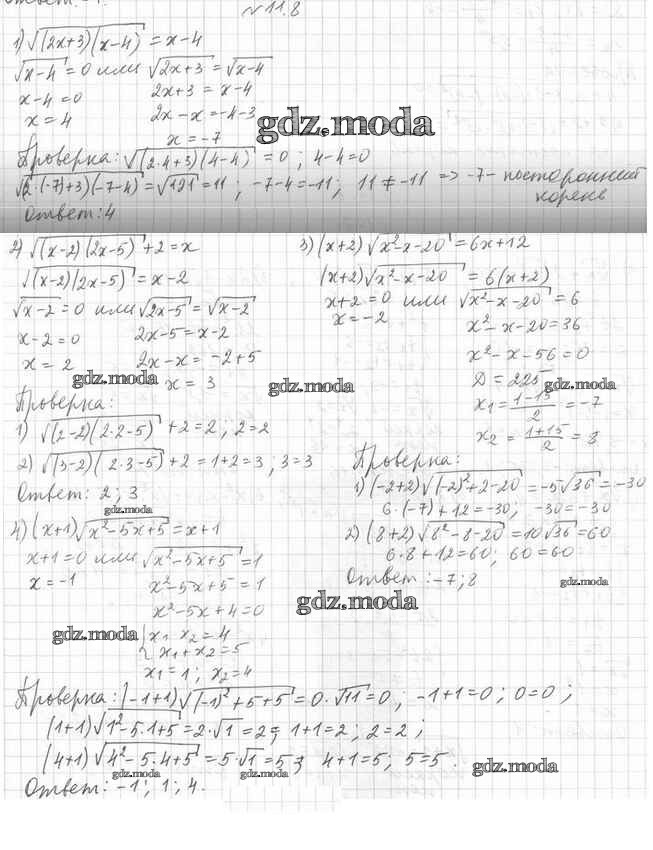 №11.8
1) √((2x+3)(x-4)) = x-4
√(x-4) = 0 или √(2x+3) = √(x-4)
x-4=0 2x+3 = x-4
x = 4 2x-x = -4-3
x = -7
gdz.moda
Проверка: √((2·4+3)(4-4)) = 0 ; 4-4=0
√(2·(-7)+3)(-7-4) = √121 = 11 ; -7-4=-11; 11 ≠ -11 => -7- посторонний
корень
Ответ: 4
2) √((x-2)(2x-5)) + 2 = x
√((x-2)(2x-5)) = x-2
√(x-2) = 0 или √(2x-5) = √(x-2)
x-2=0 2x-5 = x-2
x = 2 2x-x = -2+5
gdz.moda
x = 3
Проверка:
1) √((2-2)(2·2-5)) + 2 = 2 ; 2=2
2) √((3-2)(2·3-5)) + 2 = 1+2=3 ; 3=3
Ответ: 2 ; 3
gdz.moda
3) (x+2)√(x²-x-20) = 6x+12
(x+2)√(x²-x-20) = 6(x+2)
x+2=0 или √(x²-x-20) = 6
x = -2 x²-x-20=36
x²-x-56=0
gdz.moda
D = 225
gdz.moda
x₁ = (1-15)/2 = -7
x₂ = (1+15)/2 = 8
Проверка:
1) (-2+2)√((-2)²+2-20) = -5√36 = -30
6·(-7)+12=-30; -30=-30
2) (8+2)√(8²-8-20) = 10√36 = 60
6·8+12=60; 60=60
Ответ: -7; 8
gdz.moda
gdz.moda
4) (x+1)√(x²-5x+5) = x+1
x+1=0 или √(x²-5x+5) = 1
x = -1 x²-5x+5 = 1
x²-5x+4=0
gdz.moda
{x₁ x₂ = 4
x₁+x₂ = 5
x₁=1 ; x₂=4
Проверка: (-1+1)√((-1)²+5+5) = 0·√11 = 0 ; -1+1=0 ; 0=0 ;
(1+1)√(1²-5·1+5) = 2·√1 = 2; 1+1=2 ; 2=2 ;
(4+1)√(4²-5·4+5) = 5·√1 = 5; 4+1=5; 5=5.
gdz.moda
gdz.moda
gdz.moda
Ответ: -1; 1; 4.